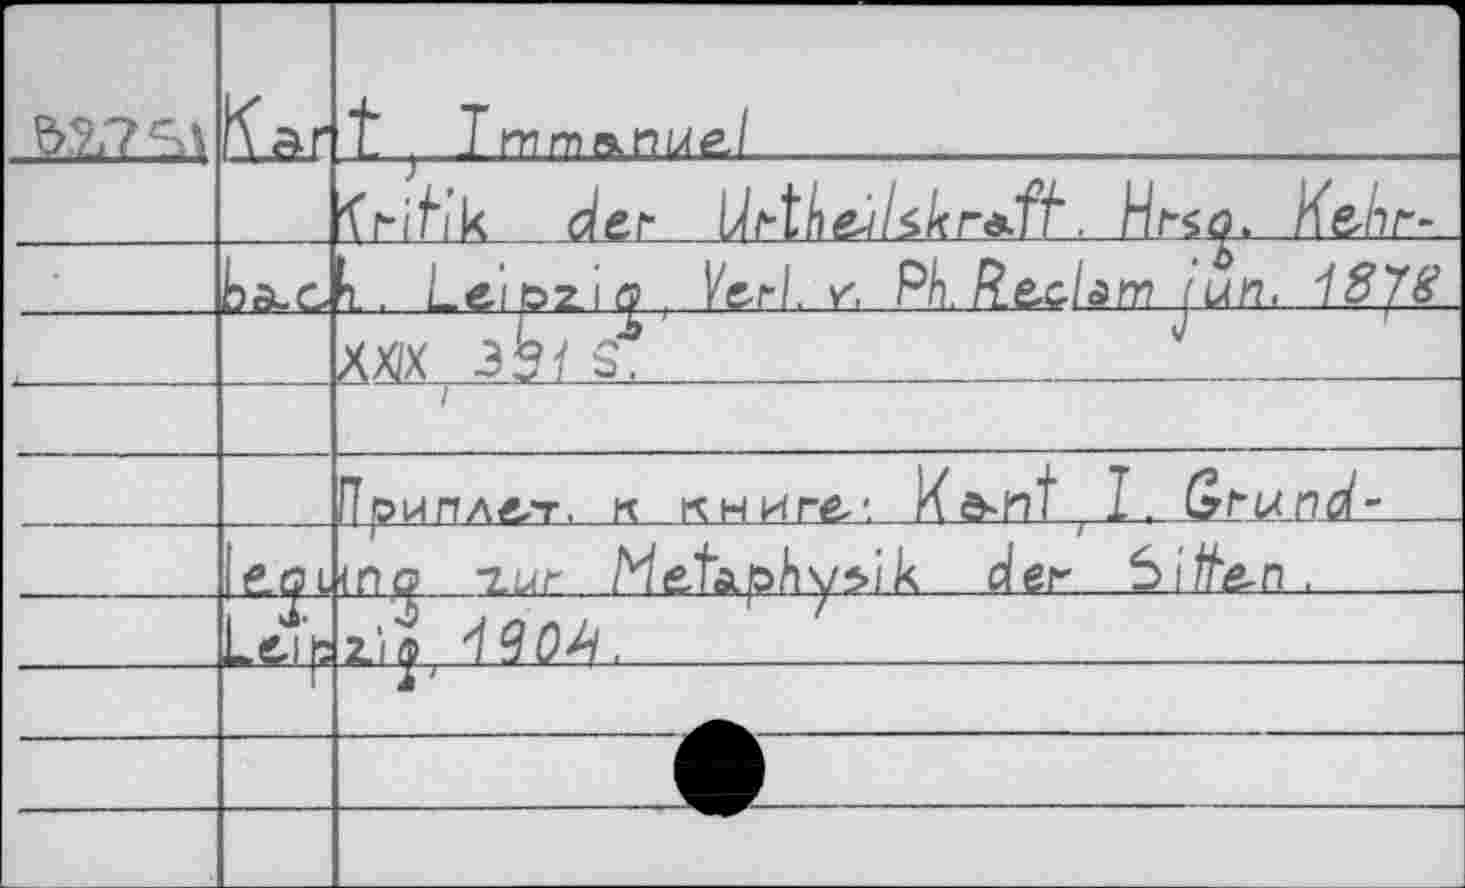 B2751 Kant, Immanuel
Kritik der Urtheilskraft. Hrsg. Kehr-
bach. Leipzig, Verl. v. Ph. Reclam jun. 1878
XXIX, 391 S.
Приплет. к книге: Kant, I. Grund-
legung zur Metaphysik der Sitten.
Leipzig, 1904.